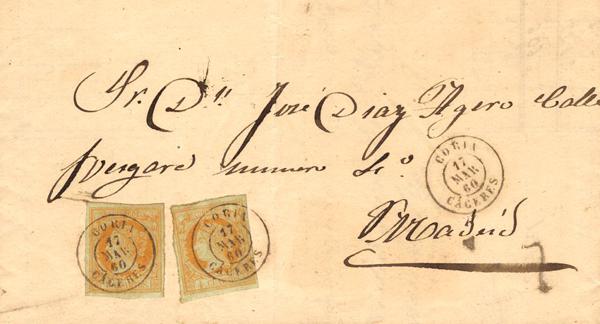 Sr. Dn. José Diaz Agero Calle
Vergara numero 4º
Madrid
CORIA
17
MAR
60
CACERES
CORIA
17
MAR
60
CACERES
CORIA
17
MAR
60
CACERES